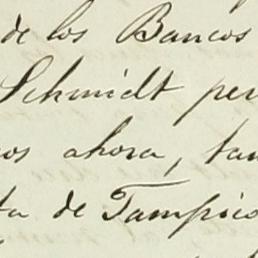 de los Bancos
Schmidt per
os ahora, tan
ta de Tampico